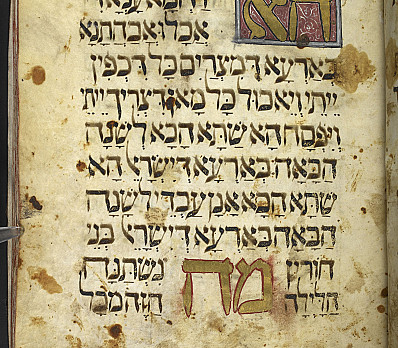 הא
אכלו אבהתנא
בארעא דמצרים כל דכפין
ייתי ויאכול כל מאן דצריך ייתי
ויפסח הא שתא הכא לשנה
הבאה בארעא דישראל הא
שתא הכא אנן עבדי לשנה
הבאה בארעא דישראל בני
חורין מה נשתנה
הלילה הזה מכל